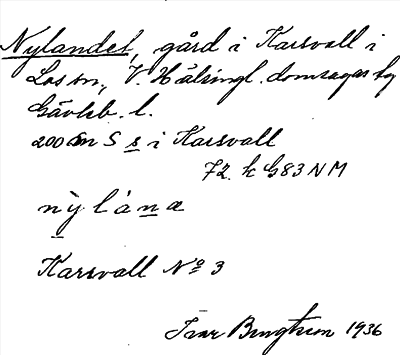 Nylandet, gård i Karsvall i
Los sn, V. Hälsingl. domsagas tg
Gävleb. l.
200 m S s i Karsvall
72. k G83 N M
nỳlàna
Karsvall No 3
Ivar Bengtsson 1936